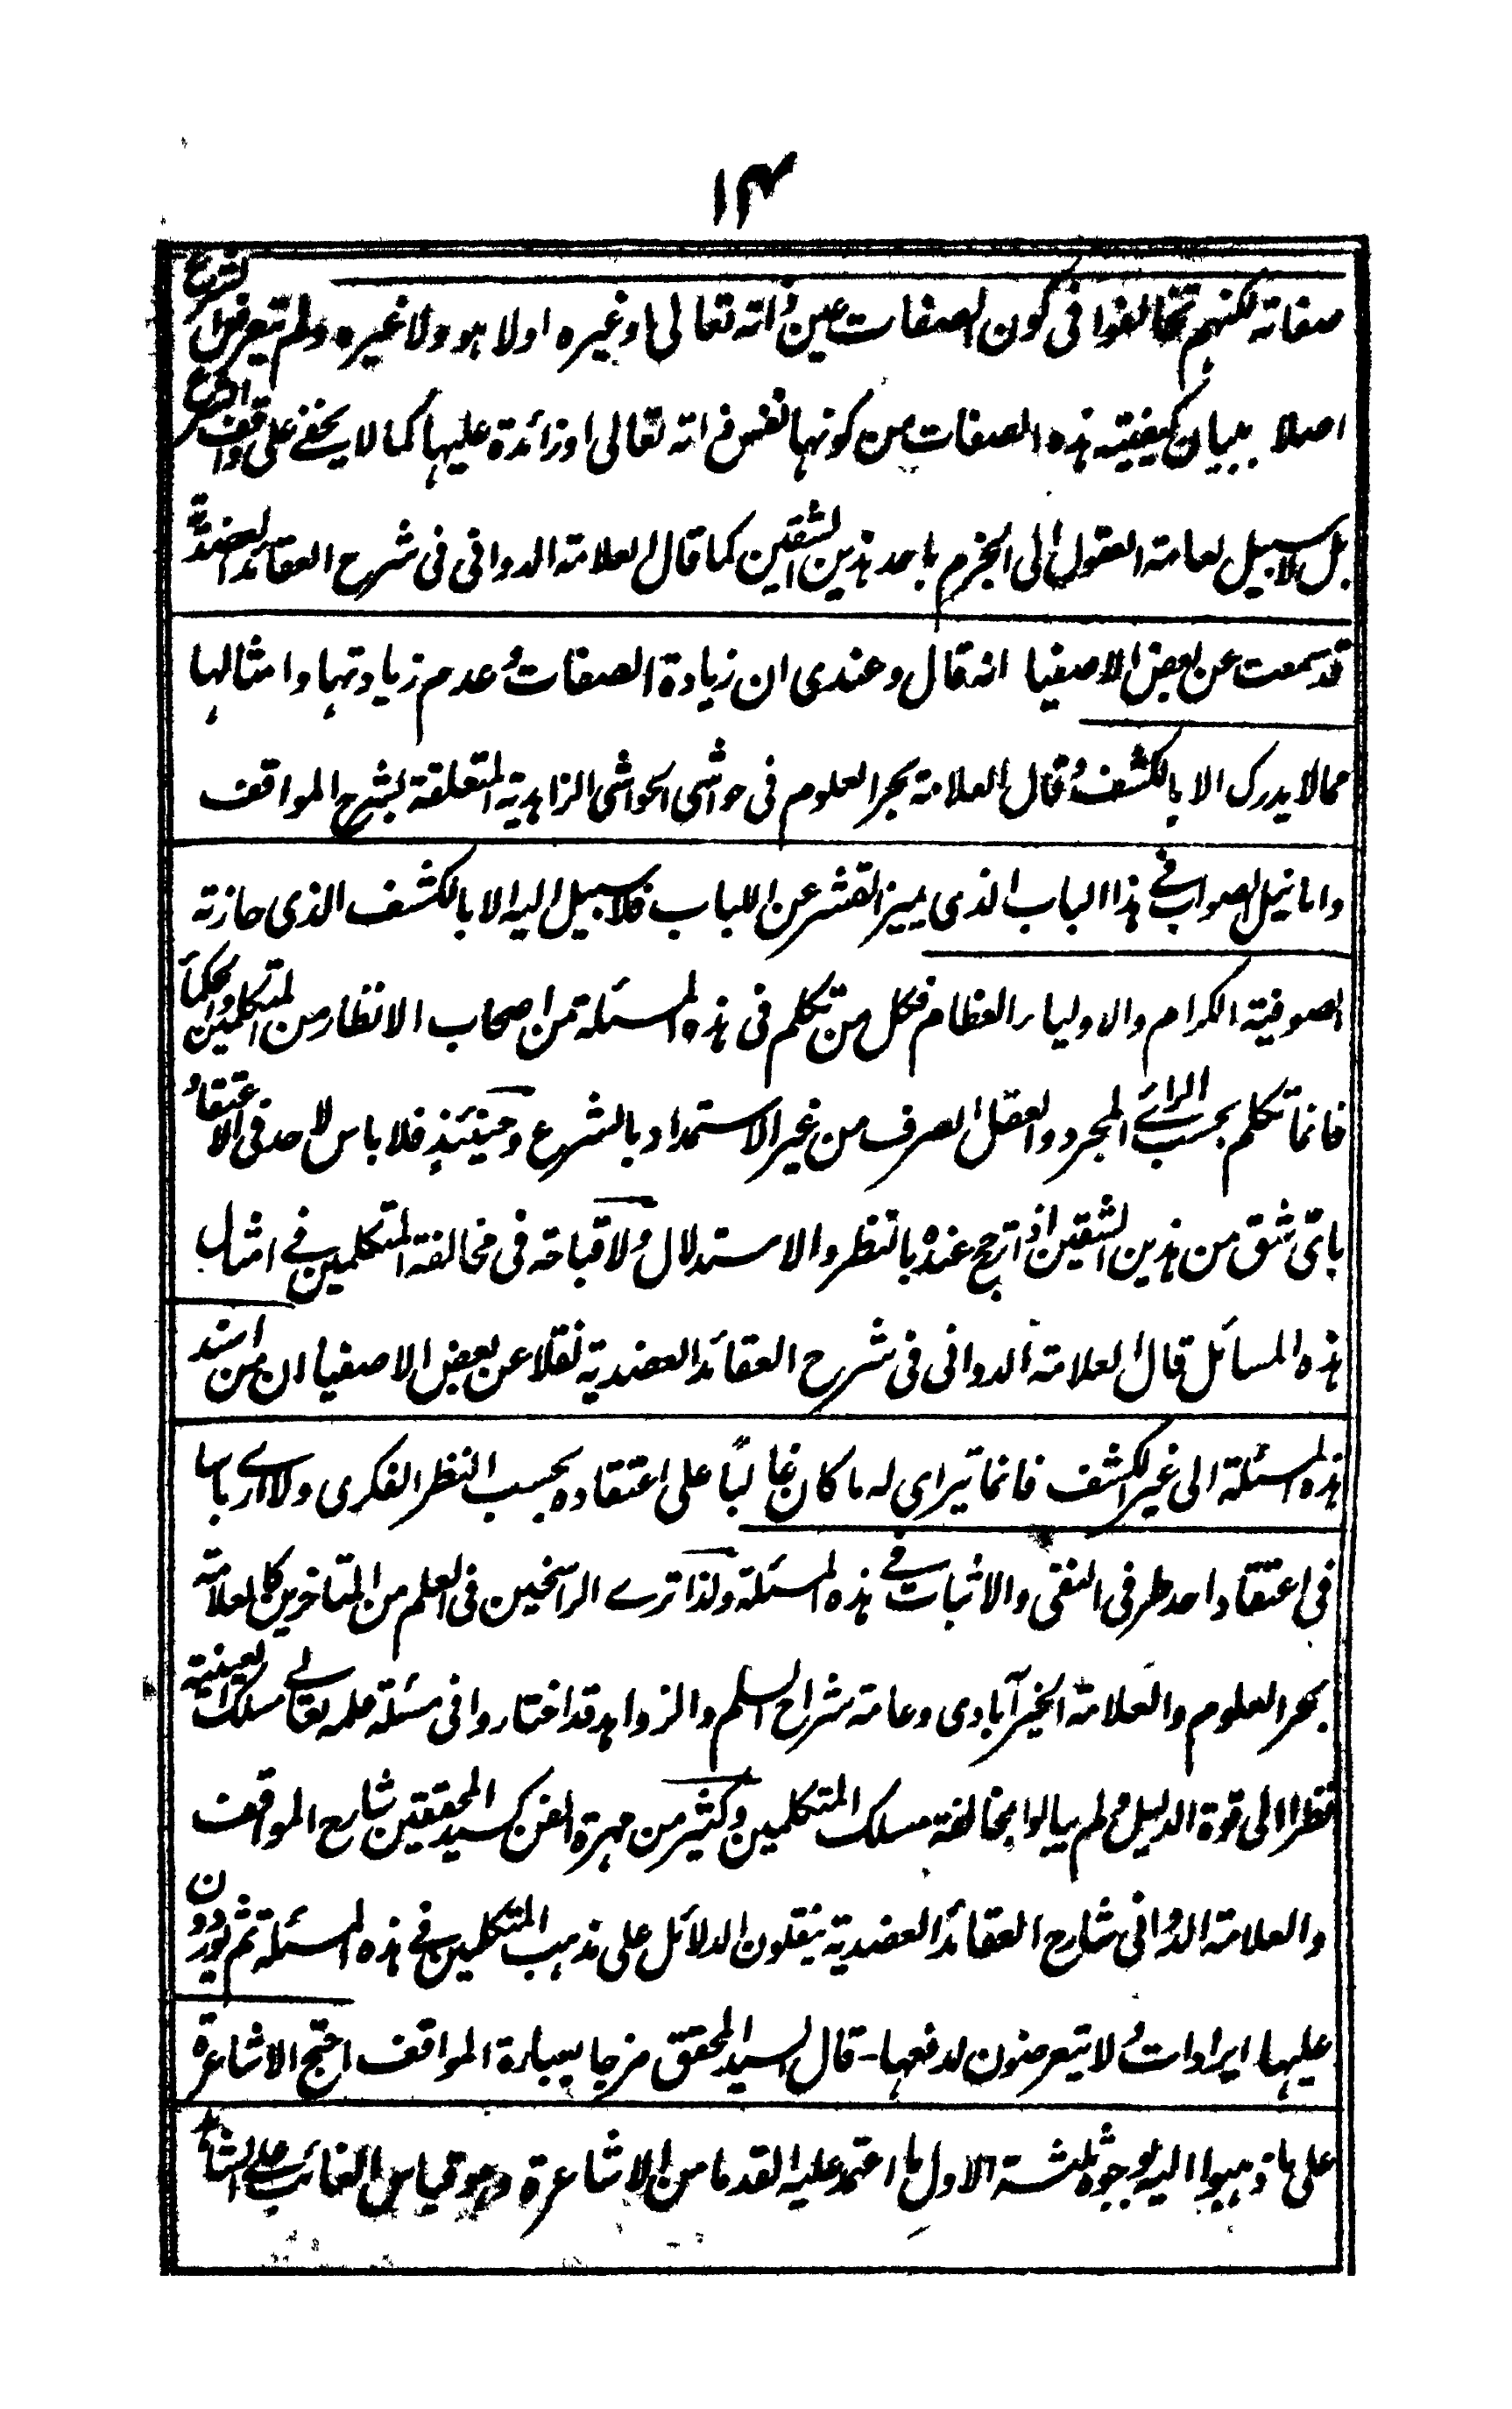 ١٤
صفاته لكنهم تخالفوا فى كون الصفات عين ذاته تعالى او غيره او لا هو ولا غيره ولم يتعرض الشرع
اصلا ببيان كيفية هذه الصفات من كونها نفس ذاته تعالى او زائدة عليها كما لا يخفے على واقف الشرع
بل لا سبيل لعامة العقول الى الجزم باحد هذين الشقين كما قال العلامة الدوانى فى شرح العقائد العضدية
قد سمعت عن بعض الاصفيا انه قال وعندى ان زيادة الصفات وعدم زيادتها وامثالها
مما لا يدرك الا بالكشف وقال العلامة بحر العلوم فى حواشى الحواشى الزاهدية المتعلقة بشرح المواقف
واما نيل الصواب فے هذا الباب الذى يميز القشر عن اللباب فلا سبيل اليه الا بالكشف الذى حازته
الصوفية الكرام والاولياء العظام فكل من تكلم فى هذه المسئلة من اصحاب الانظار من المتكلمين والحكماء
فانما تكلم بحسب الرائے المجرد والعقل الصرف من غير الاستمداد بالشرع وحينئذٍ فلا باس لاحد فى الاعتقاد
باىّ شق من هذين الشقين اذا ترجح عنده بالنظر والاستدلال ولا قباحة فى مخالفة المتكلمين فے امثال
هذه المسائل قال العلامة الدوانى فى شرح العقائد العضدية نقلا عن بعض الاصفيا ان من اسند
هذه المسئلة الى غير الكشف فانما يتراى له ما كان غالبًا على اعتقاده بحسب النظر الفكرى ولا ارے باسا
فى اعتقاد احد طرفى النفى والاثبات فے هذه المسئلة ولذا ترے الراسخين فى العلم من المتاخرين كالعلامة
بحر العلوم والعلامة الخيرآبادى وعامة شراح السلم والزواهد قد اختاروا فى مسئلة علمه تعالے مسلك العينية
نظرا الى قوة الدليل ولم يبالوا بمخالفة مسلك المتكلمين وكثير من مهرة الفن كسيد المحققين شارح المواقف
والعلامة الدوانى شارح العقائد العضدية ينقلون الدلائل على مذهب المتكلمين فے هذه المسئلة ثم يوردون
عليها ايرادات ولا يتعرضون لدفعها - قال السيد المحقق مزجا بعبارة المواقف احتج الاشاعرة
على ما ذهبوا اليه بوجوه ثلثة الاول ما اعتمد عليه القدما من الاشاعرة وهو قياس الغائب على الشاهد